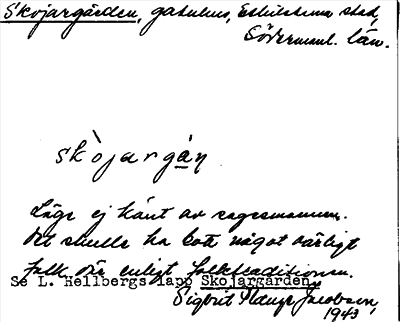 Skojargården, gatuhus, Eskilstuna stad,
Södermanl. län.
skòjargán
Läge ej känt av sagesmannen.
Det skulle ha bott något dåligt
folk där enligt folktraditionen.
Se L. Hellbergs lapp Skojargården
Sigbrit Plænge Jacobson,
1943